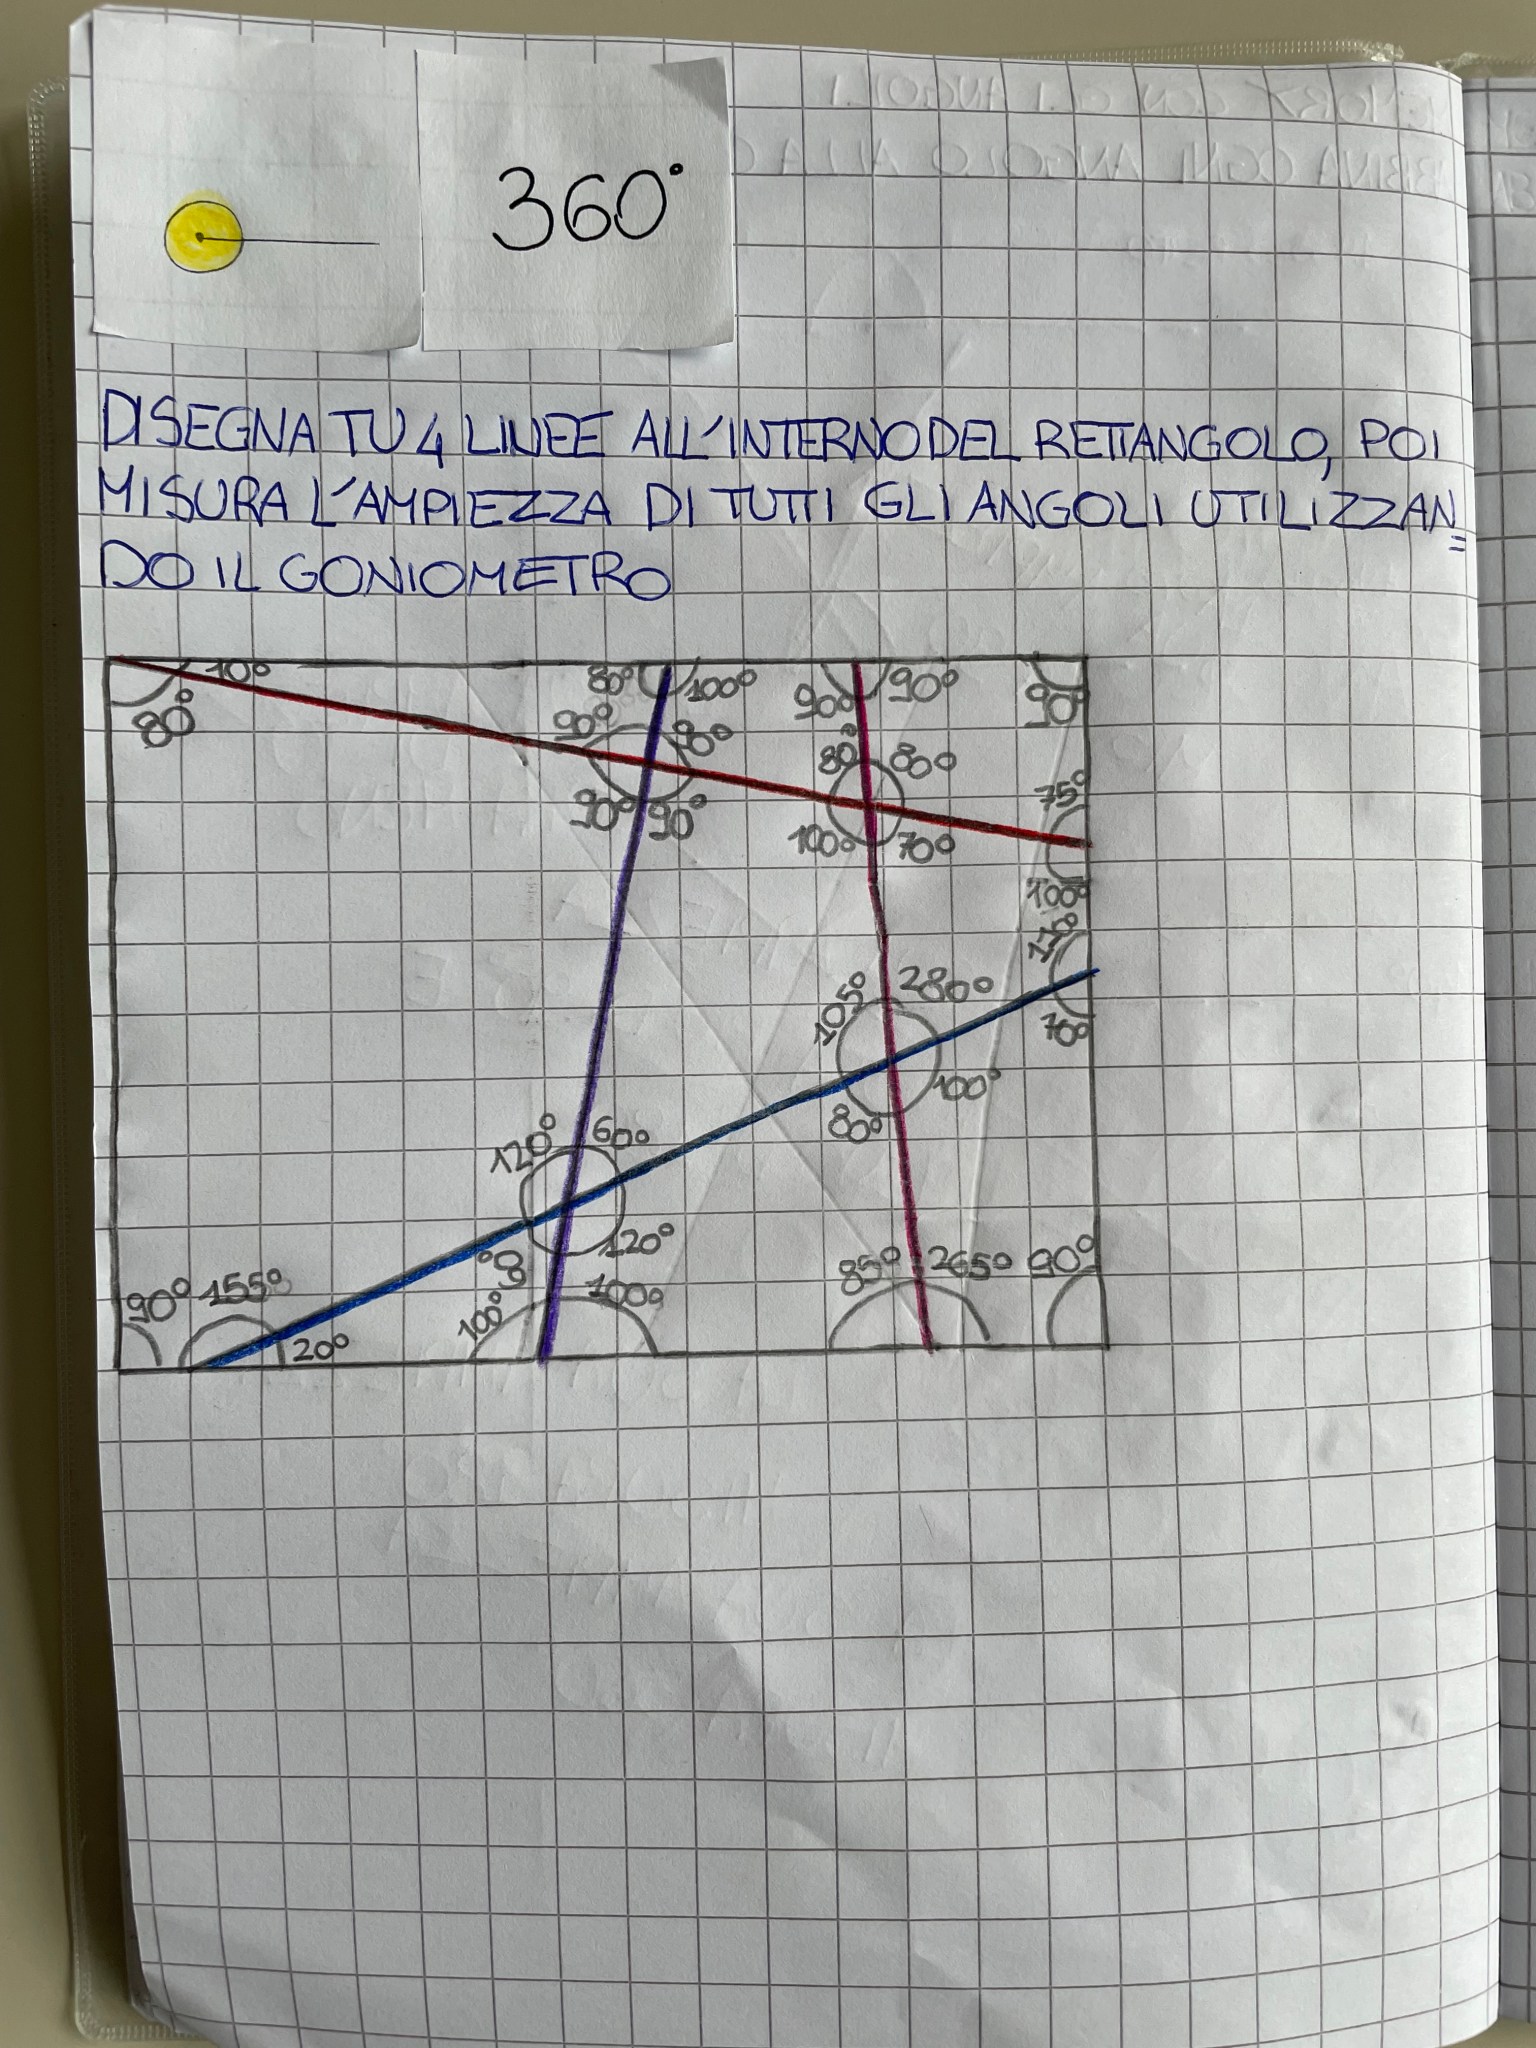 360°
DISEGNA TU 4 LINEE ALL'INTERNO DEL RETTANGOLO, POI
MISURA L'AMPIEZZA DI TUTTI GLI ANGOLI UTILIZZAN=
DO IL GONIOMETRO
10° 80° 100° 90° 90° 90°
80° 90° 90° 80° 80°
90° 90° 100° 70° 75°
100°
105° 280°
70°
80° 100°
120° 60°
120°
90° 155° 20° 100° 100° 85° 265° 90°